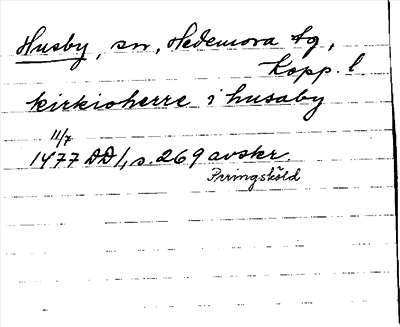 Husby, sn, Hedemora tg,
Kopp. l
kirkioherre i husaby
11/7
1477 DD 1, s. 269 avskr.
Peringsköld